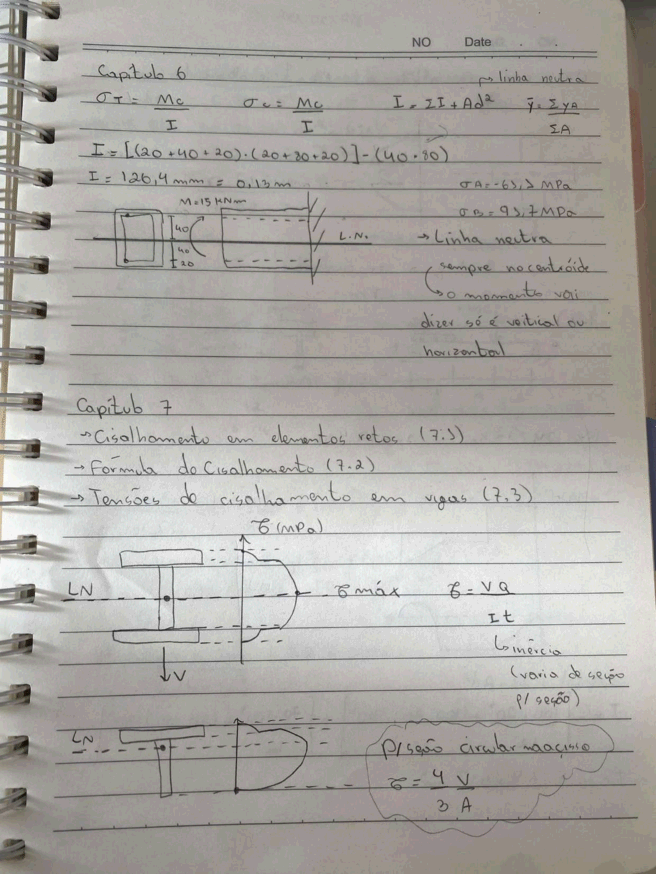 NO Date . .
Capítulo 6
→ linha neutra
σT = Mc/I σc = Mc/I I = ΣI + Ad² ȳ = ΣyA/ΣA
I = [(20+40+20)·(20+80+20)] - (40·80)
I = 126,4 mm = 0,13 m
σB = 93,7 MPa
M=15 kNm
40
40
20
L.N.
→ Linha neutra
sempre no centróide
→ o momento vai
dizer só é vertical ou
horizontal
Capítulo 7
→ Cisalhamento em elementos retos (7.1)
→ Fórmula do Cisalhamento (7.2)
→ Tensões de cisalhamento em vigas (7.3)
τ (MPa)
LN
τ máx τ = VQ/It
↳ inércia
(varia de seção
p/ seção)
V
LN
P/ seção circular maciço
τ = 4/3 V/A